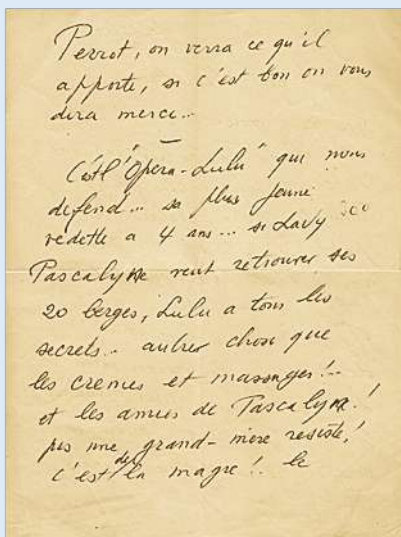 Perrot, on verra ce qu'il
apporte, si c'est bon on vous
dira merci...
—
C'est l'"Opera-Lulu" qui nous
defend... sa plus jeune
vedette a 4 ans... si Lady
Pascalyne veut retrouver ses
20 berges, Lulu a tous les
secrets.. autres chose que
les cremes et massages!..
et les amies de Pascalyne!
pas une grand-mère resiste!
c'est de la magie!. le